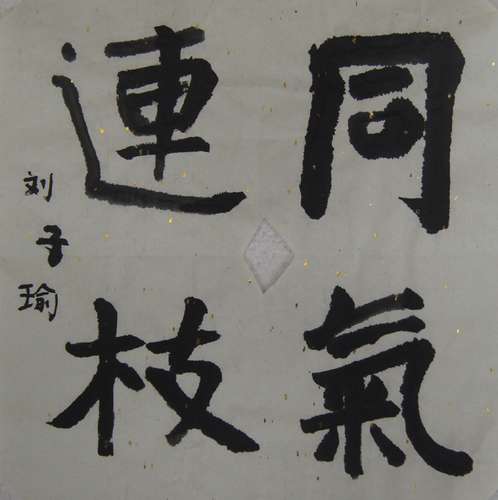 同氣
連枝
刘子瑜